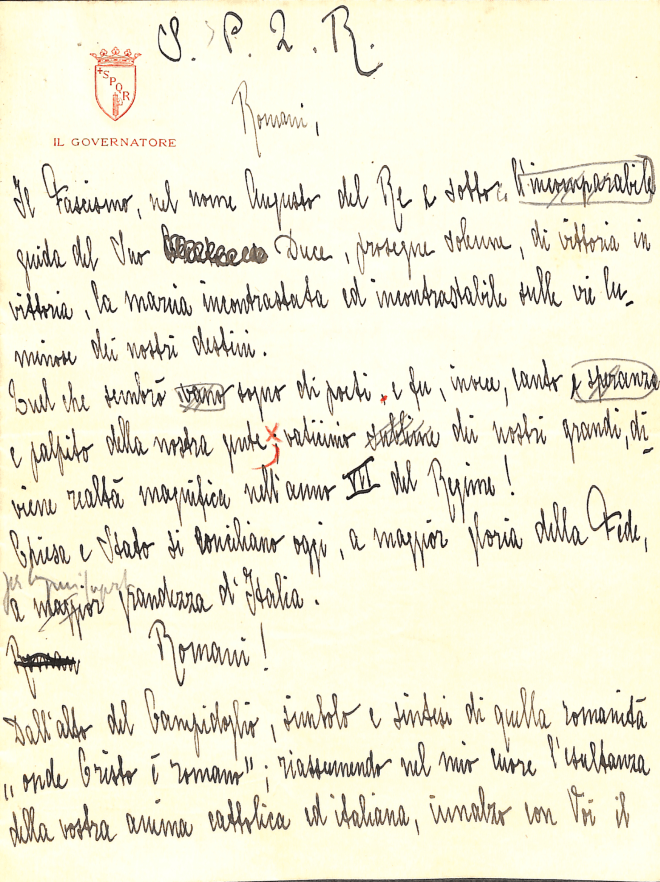 S. P. Q. R.
SPQR
IL GOVERNATORE
Romani,
Il Fascismo, nel nome Augusto del Re e sotto l'incomparabile
guida del Suo Duce, prosegue solenne, di vittoria in
vittoria, la marcia incontrastata ed incontrastabile sulle vie lu-
minose dei nostri destini.
Quel che sembrò vano sogno di poeti e fu, invece, canto e speranza
e palpito della nostra gente, vaticinio sublime dei nostri grandi, di-
viene realtà magnifica nell'anno VII del Regime!
Chiesa e Stato si conciliano oggi, a maggior gloria della Fede,
a maggior grandezza d'Italia.
Roman Romani!
Dall'alto del Campidoglio, simbolo e sintesi di quella romanità
„onde Cristo è romano"; riassumendo nel mio cuore l'esultanza
della vostra anima cattolica ed italiana, innalzo con Voi il